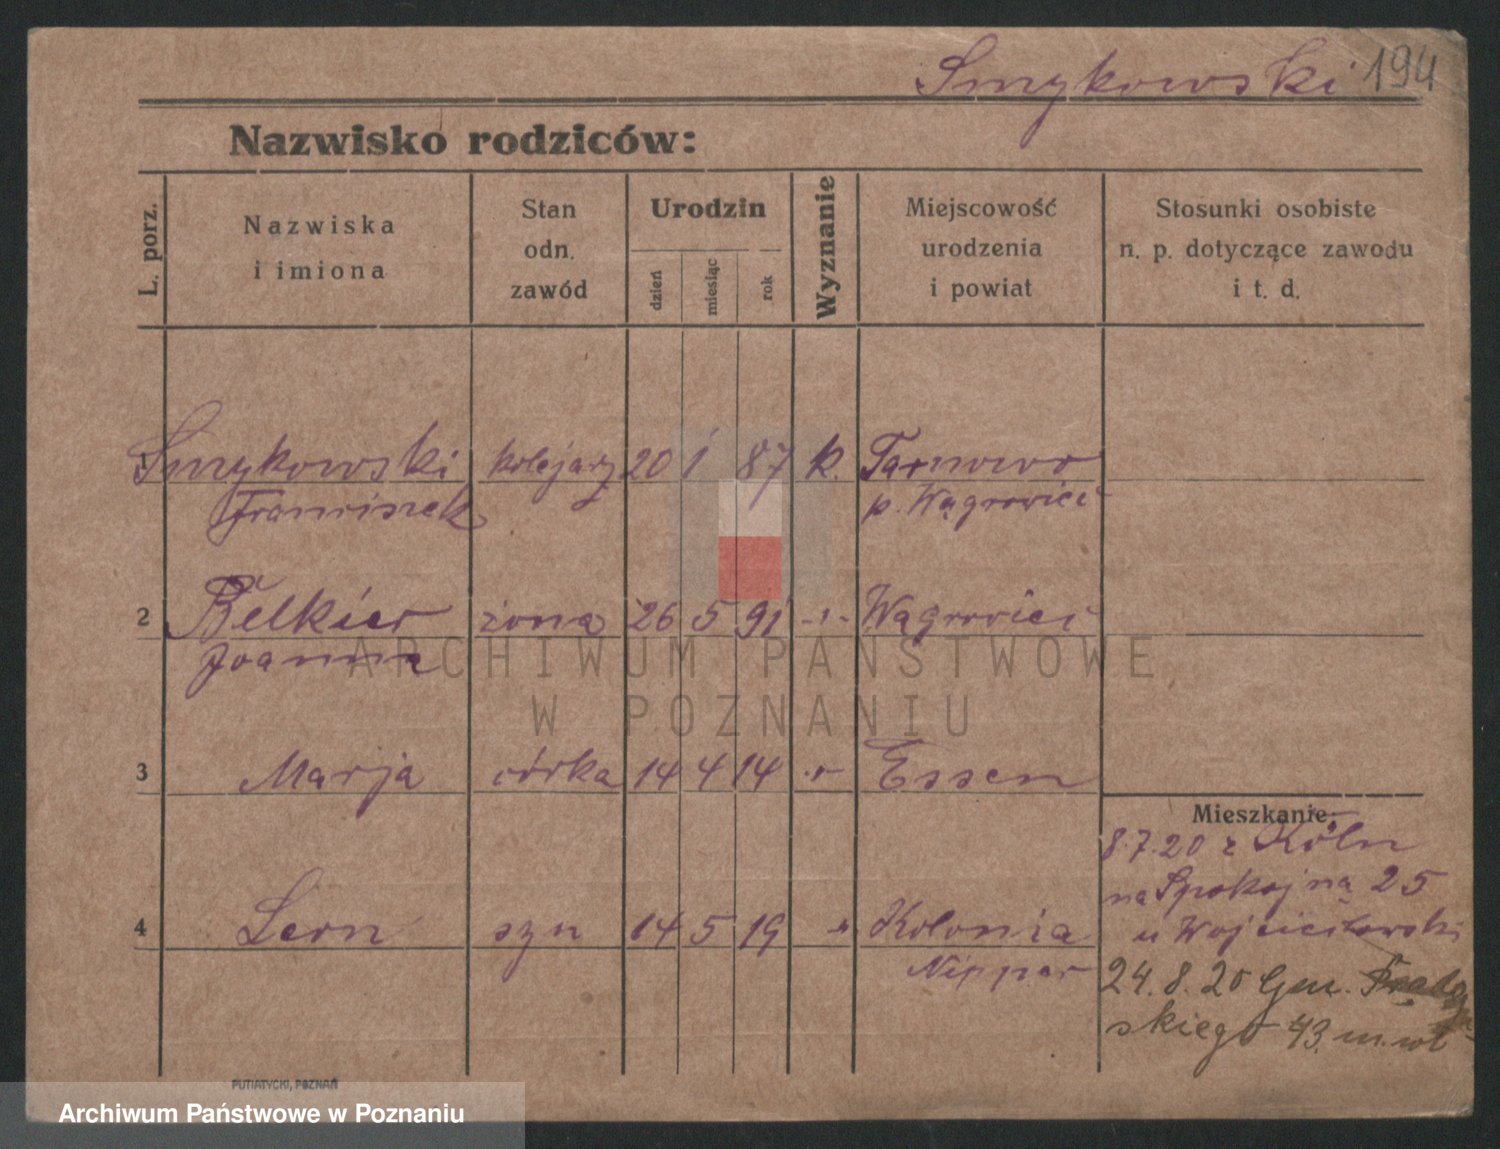 Smykowski 194
Nazwisko rodziców:
L. porz.
Nazwiska
i imiona
Stan
odn.
zawód
Urodzin
dzień
miesiąc
rok
Wyznanie
Miejscowość
urodzenia
i powiat
Stosunki osobiste
n. p. dotyczące zawodu
i t. d.
1 Smykowski kolejarz 20 1 87 k. Tarnowo
Franciszek p. Wągrowiec
2 Belkier żona 26 5 91 -"- Wągrowiec
Joanna
3 Marja córka 14 4 14 -"- Essen
Mieszkanie:
8.7.20 z Köln
na Spokojną 25
u
4 Leon szyn 14 5 19 " Kolonia
Nippes
24.8.20 Gen.
skiego 43. m. wł
PUTIATYCKI, POZNAŃ
ARCHIWUM PAŃSTWOWE
W POZNANIU
Archiwum Państwowe w Poznaniu